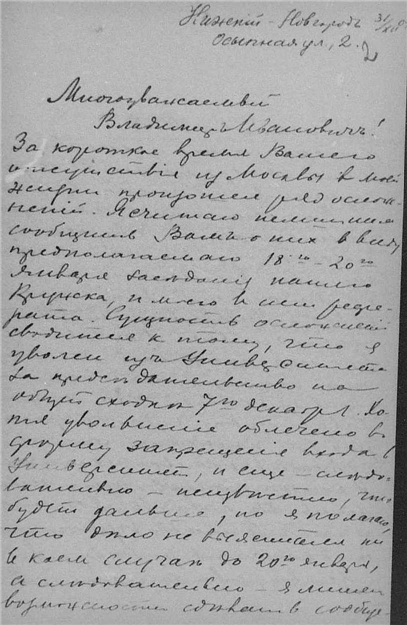 Нижній-Новгородъ 31/XII
Осыпная ул, 2.
Многоуважаемый
Владимиръ Ивановичъ!
За короткое время Вашего
отсутствія изъ Москвы въ моей
жизни произошелъ рядъ ослож-
неній. Я считаю нелишнимъ
сообщить Вамъ о нихъ въ виду
предполагаемаго 18го-20го
января засѣданія нашего
Кружка, и моего въ немъ рефе-
рата. Сущность осложненій
сводится къ тому, что я
уволенъ изъ Университета
за предсѣдательство на
общей сходкѣ 7го декабря. Хо-
тя увольненіе облечено въ
форму запрещенія входа въ
Университетъ, и еще - слѣдо-
вательно - неизвѣстно, что
будетъ дальше, но я полагаю,
что дѣло не выяснится ни
въ коемъ случаѣ до 20го января,
а слѣдовательно - я лишенъ
возможности сдѣлать сообще